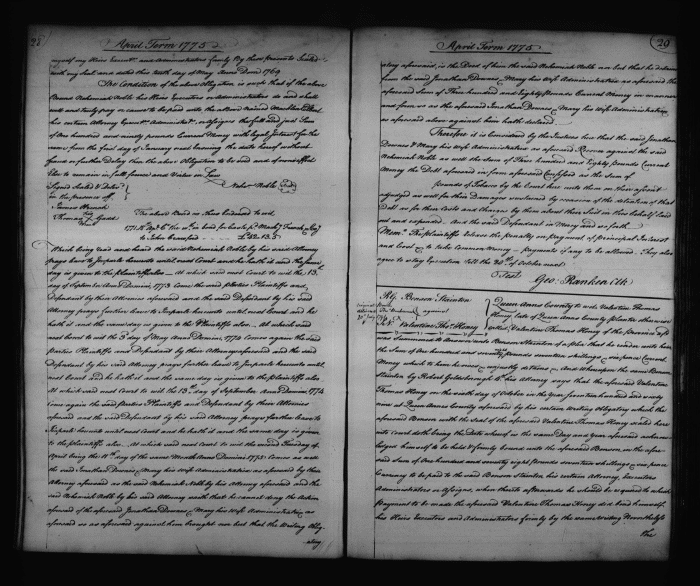 28
April Term 1775
myself my Heirs Execut.rs and Administrators firmly by these presents Sealed
with my Seal and dated this tenth day of May Anno Domini 1769
The Condition of the above Obligation is such that if the above
Bound Nehemiah Noble his Heirs Executors or Administrators do and shall
well and truly pay or cause to be paid unto the above Named
his certain Attorney Execut.rs Administ.rs or assigns the full and just Sum
of One hundred and ninety pounds Current Money with legal Interest for the
same from the first day of January
fraud or further Delay then the above Obligation to be void and of none effect
Else to remain in full force and Virtue in Law
Signed Sealed & Deliv.d
in the presence off
Nehe.h Noble (Seal)
James
Thomas Gadd
The above Bond is thus Endorsed to wit
1771
to John
Which being read and heard the said Nehemiah Noble by his said Attorney
prays leave to Imparle hereunto until next Court and he hath it and the same
day is given to the Plaintiffs also. At which said next Court to wit the 13.th
day of September Anno Domini 1773 Come the said parties Plaintiffs and
Defendant by their Attornies aforesaid and the said Defendant by his said
Attorney prays further leave to Imparle hereunto until next Court and he
hath it and the same day is given to the Plaintiffs also. At which said
next Court to wit the 3 day of May Anno Domini 1774 comes again the said
Parties Plaintiffs and Defendant by their Attorneys aforesaid and the said
Defendant by his said Attorney prays further leave to Imparle hereunto until
next Court and he hath it and the same day is given to the plaintiffs also
At which said next Court to wit the 13.th day of September Anno Domini 1774
come again the said parties Plaintiffs and Defendant by their Attornies
aforesaid and the said Defendant by his said Attorney prays further leave to
Imparle hereunto until next Court and he hath it and the same day is given
to the plaintiffs also. At which said next Court to wit the Tuesday of
April being the 11.th day of the same Month Anno Domini 1775 Comes as well
the said Jonathan Downes & Mary his Wife Administratrix as aforesaid by their
Attorney aforesaid as the said Nehemiah Noble by his Attorney aforesaid and the
said Nehemiah Noble by his said Attorney saith that he cannot deny the Action
aforesaid of the aforesaid Jonathan Downes & Mary his Wife Administratrix as
aforesaid so as aforesaid against him brought nor but that the Writing Oblig
atory
April Term 1775
29
atory aforesaid is the Deed of him the said Nehemiah Noble nor but that he detains
from the said Jonathan Downes & Mary his Wife Administratrix as aforesaid the
aforesaid Sum of Three hundred and Eighty pounds Current Money in manner
and form as the aforesaid Jonathan Downes & Mary his Wife Administratrix
as aforesaid above against him hath declared
Therefore it is Considered by the Justices here that the said Jonathan
Downes & Mary his Wife Administratrix as aforesaid Recover against the said
Nehemiah Noble as well the Sum of Three hundred and Eighty pounds Current
Money the Debt aforesaid in form aforesaid Confessed as the Sum of
pounds of Tobacco by the Court here unto them on their assent
adjudged as well for their Damages sustained by reason of the detention of that
Debt as for their Costs and Charges by them about their Suit in this behalf laid
out and expended. And the said Defendant in Mercy and so forth
Mem.o The Plaintiffs release the Penalty on Payment of Principal Interest
and Costs to take Common Money Payments if any to be allowed They also
agree to stay Execution till the 20.th of October next
Test
Geo: Rankon Clk
Benson Stainton
against
Valentine Tho.s Honey
Queen Anns County to wit Valentine Thomas
Honey late of Queen Anns County planter otherwise
called Valentine Thomas Honey of the province
was Summoned to Answer unto Benson Stainton of a plea that he render unto him
the Sum of One hundred and seventy pounds seventeen shillings & six pence Current
Money which to him he owes & unjustly detains And Whereupon the same Benson
Stainton by Robert Goldsborough his Attorney says that the aforesaid Valentine
Thomas Honey on the sixth day of October in the Year seventeen hundred and
at Queen Anns County aforesaid by his certain Writing Obligatory which the
aforesaid Benson with the Seal of the aforesaid Valentine Thomas Honey sealed here
into Court doth bring the Date whereof is the same Day and year aforesaid acknow
ledged himself to be held & firmly bound unto the aforesaid Benson in the afore
said Sum of One hundred and seventy pounds seventeen shillings & six pence
Currency to be paid to the said Benson Stainton his certain Attorney Executors
Administrators or Assigns, when thereto afterwards he should be required to which
payment to be made the aforesaid Valentine Thomas Honey did bind himself
his Heirs Executors and Administrators firmly by the same Writing Nevertheless
the